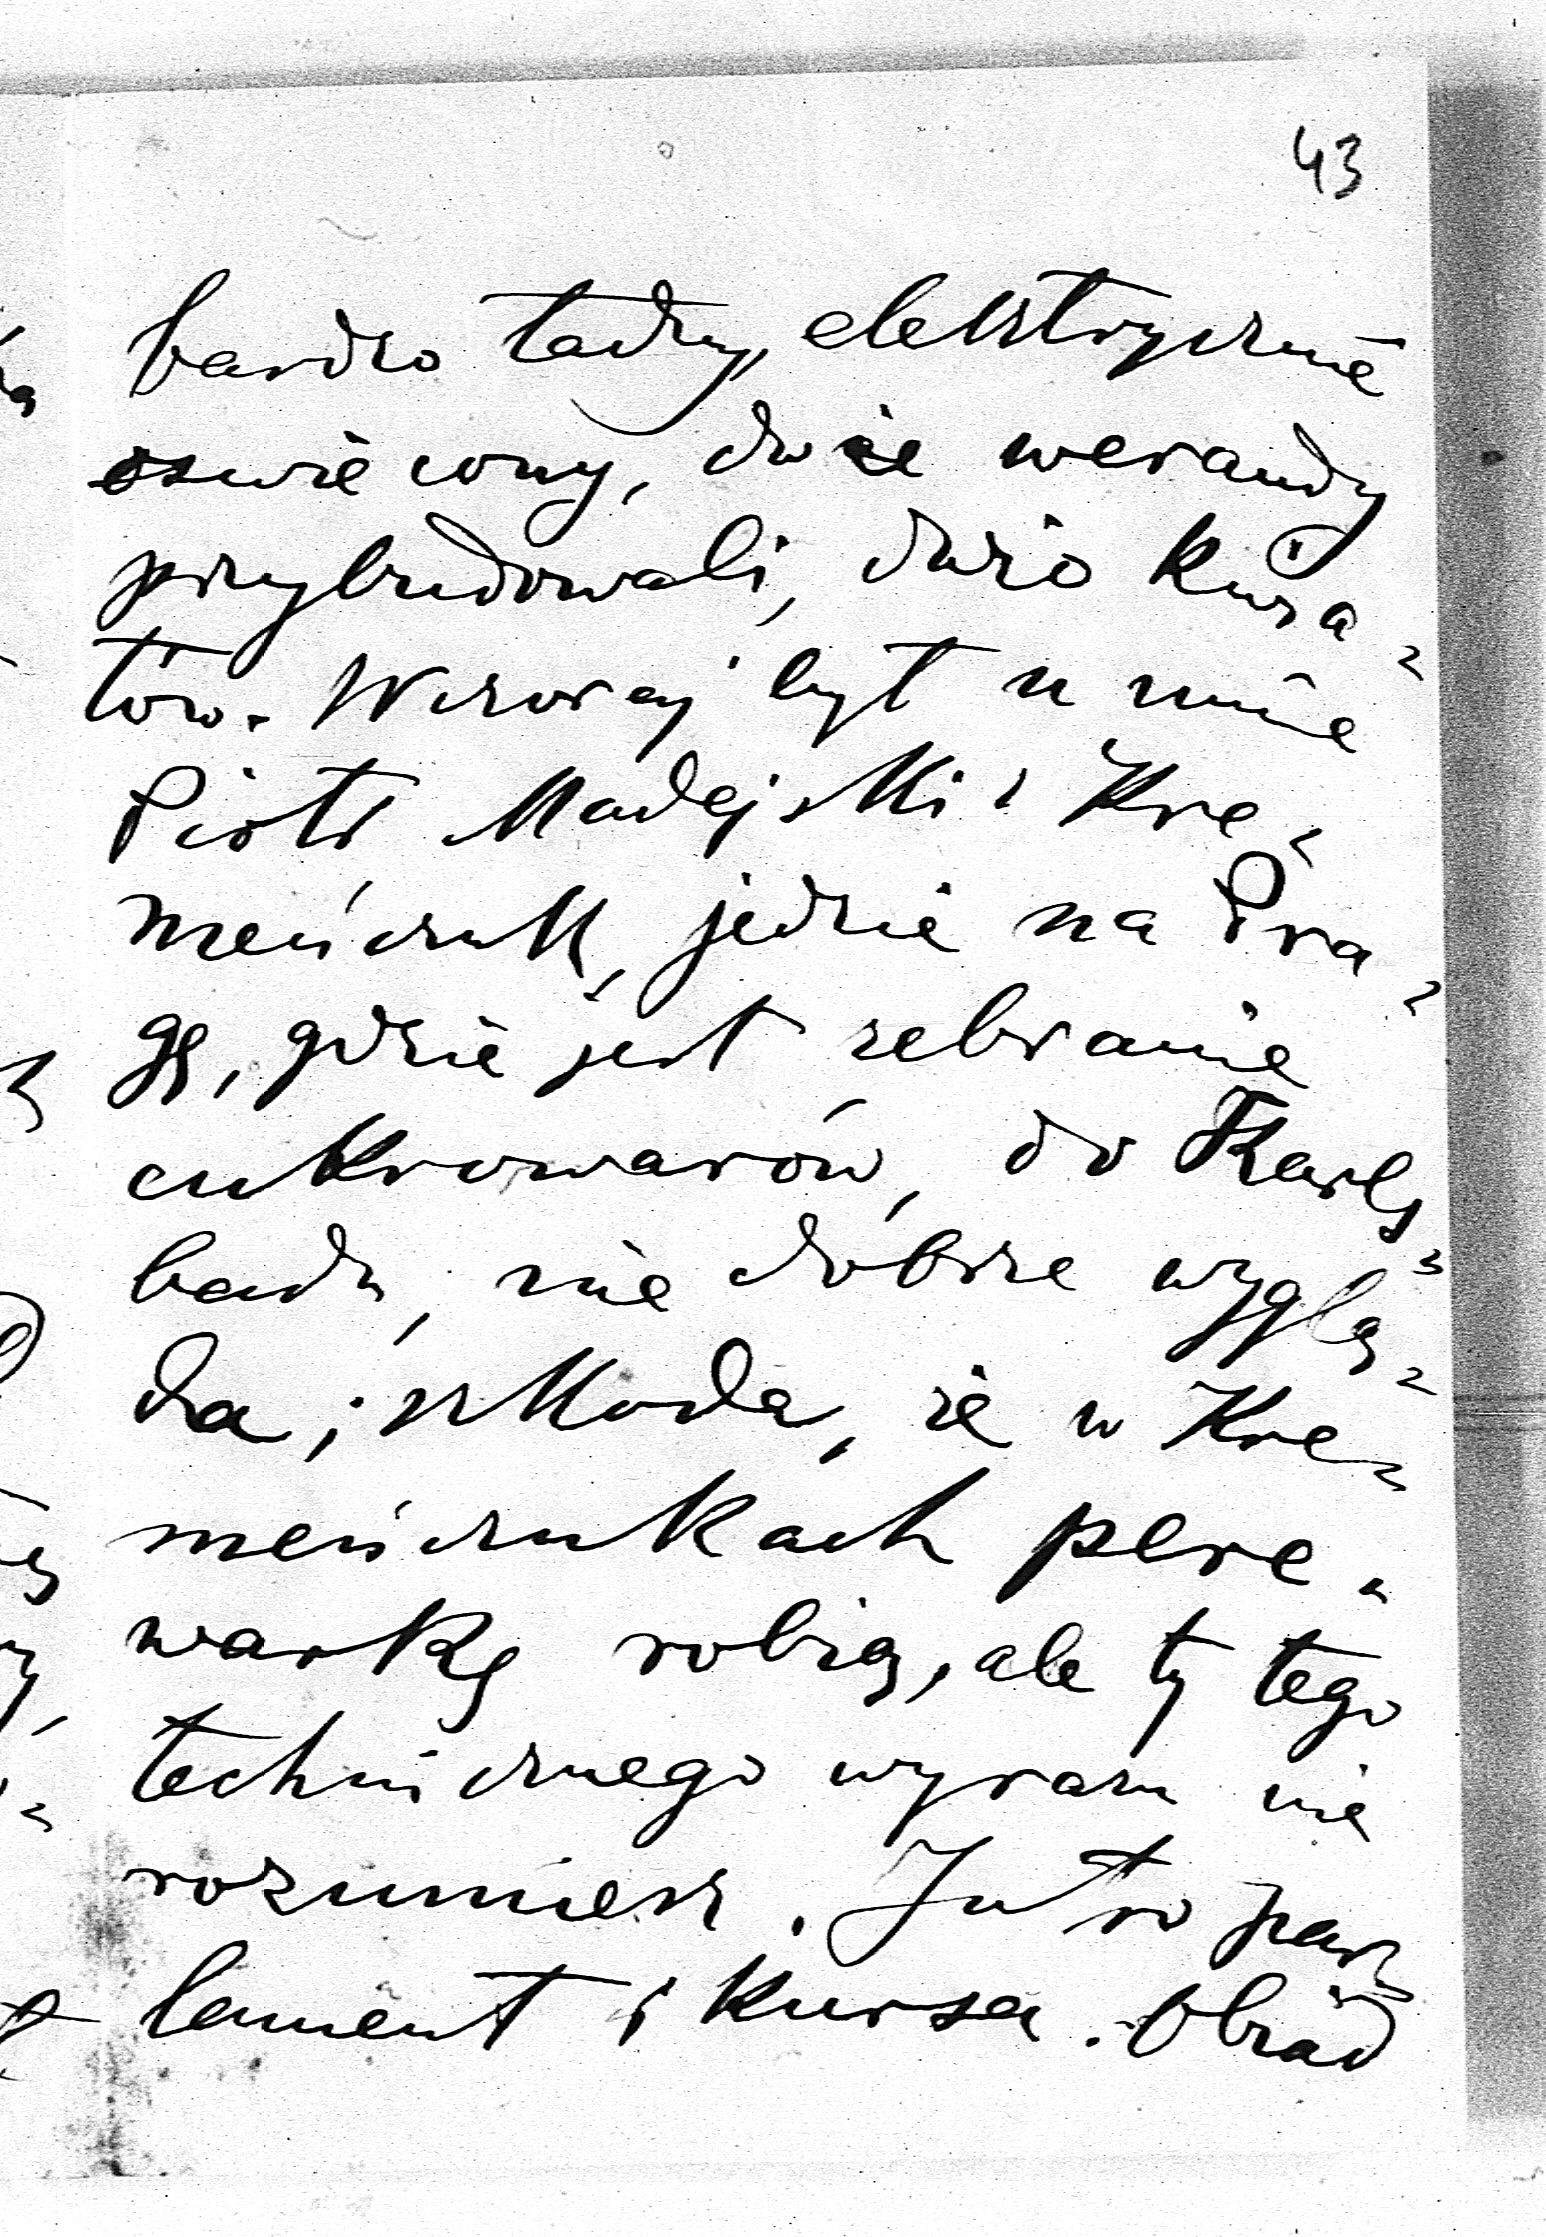 43
bardzo ładny, elektrycznie
oswiecony, duże werandy
przybudowali, dużo kwia=
tów. Wczoraj był u mnie
Piotr Madejski z Kre=
meńczuk, jedzie na Pra=
gę, gdzie jest zebranie
cukrowarów, do Karls=
badu, nie dobrze wyglą=
da; szkoda, że w Kre=
meńczukach pere=
warkę robią, ale ty tego
technicznego wyrazu nie
rozumiesz. Jutro par=
lament i kursa. Obiad